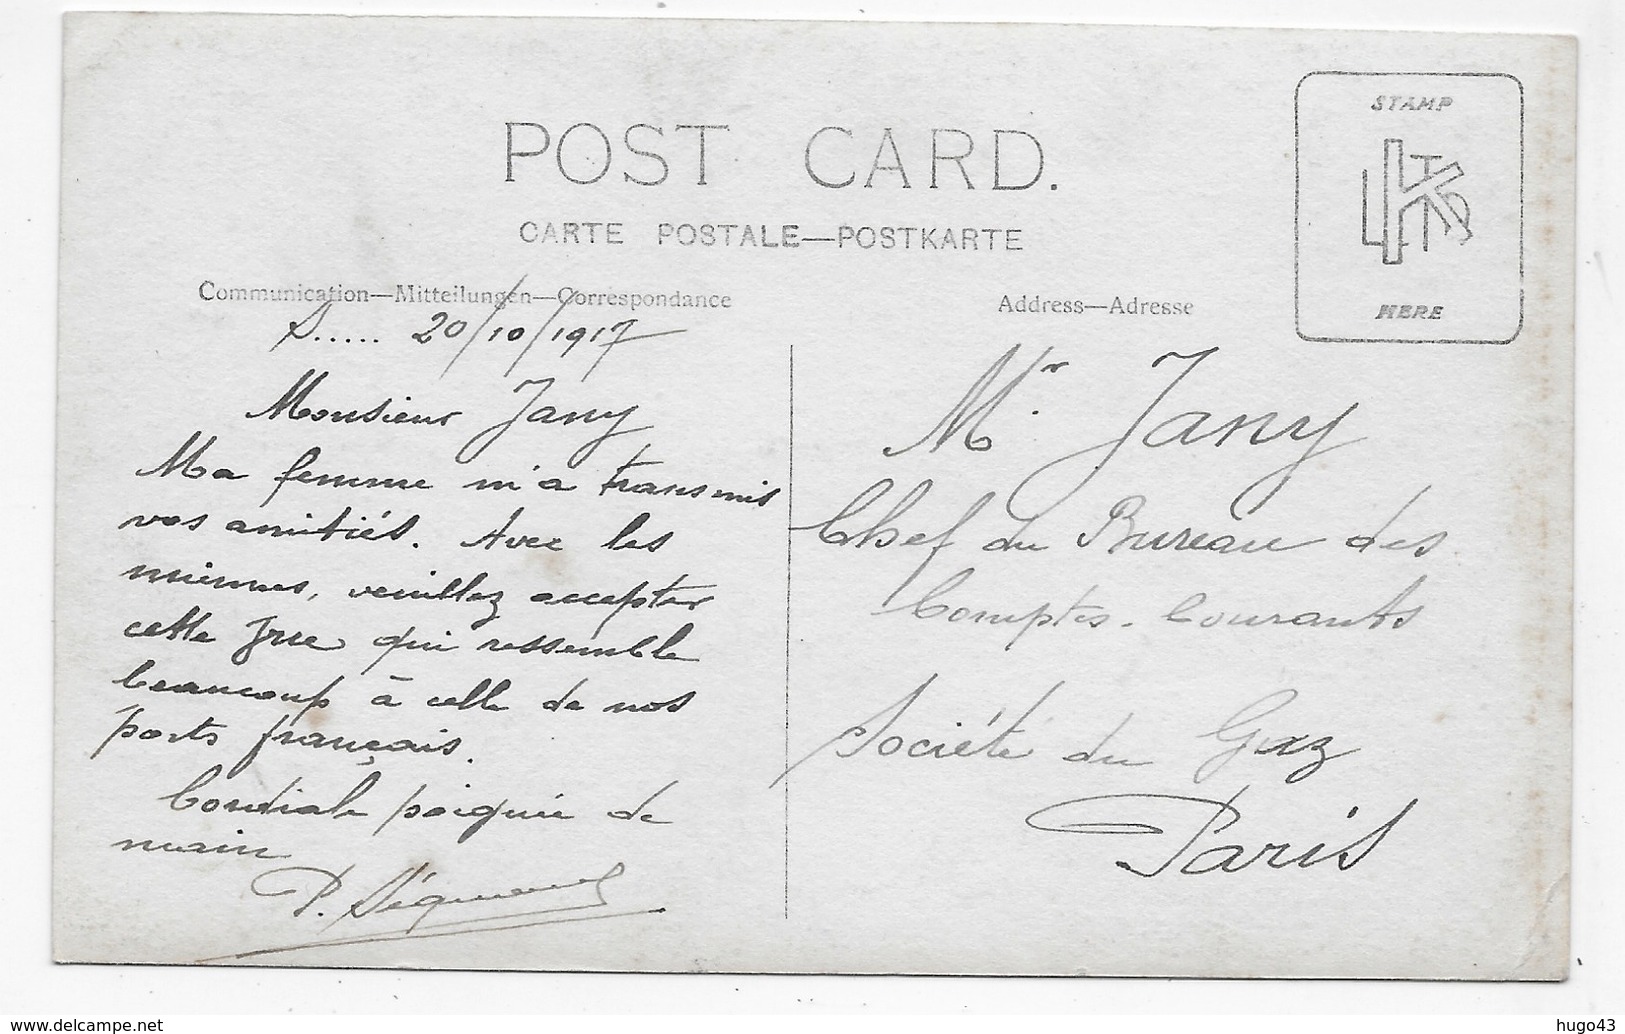 POST CARD.
CARTE POSTALE—POSTKARTE
Communication—Mitteilungen—Correspondance
S..... 20/10/1917
Monsieur Jany
Ma femme m'a transmis
vos amitiés. Avec les
miennes, veuillez accepter
cette vue qui ressemble
beaucoup à celle de nos
ports français.
Cordiale poignée de
main
P.
Address—Adresse
STAMP
HERE
Mr. Jany
Chef du Bureau des
Comptes-Courants
Société du Gaz
Paris
www.delcampe.net
hugo43